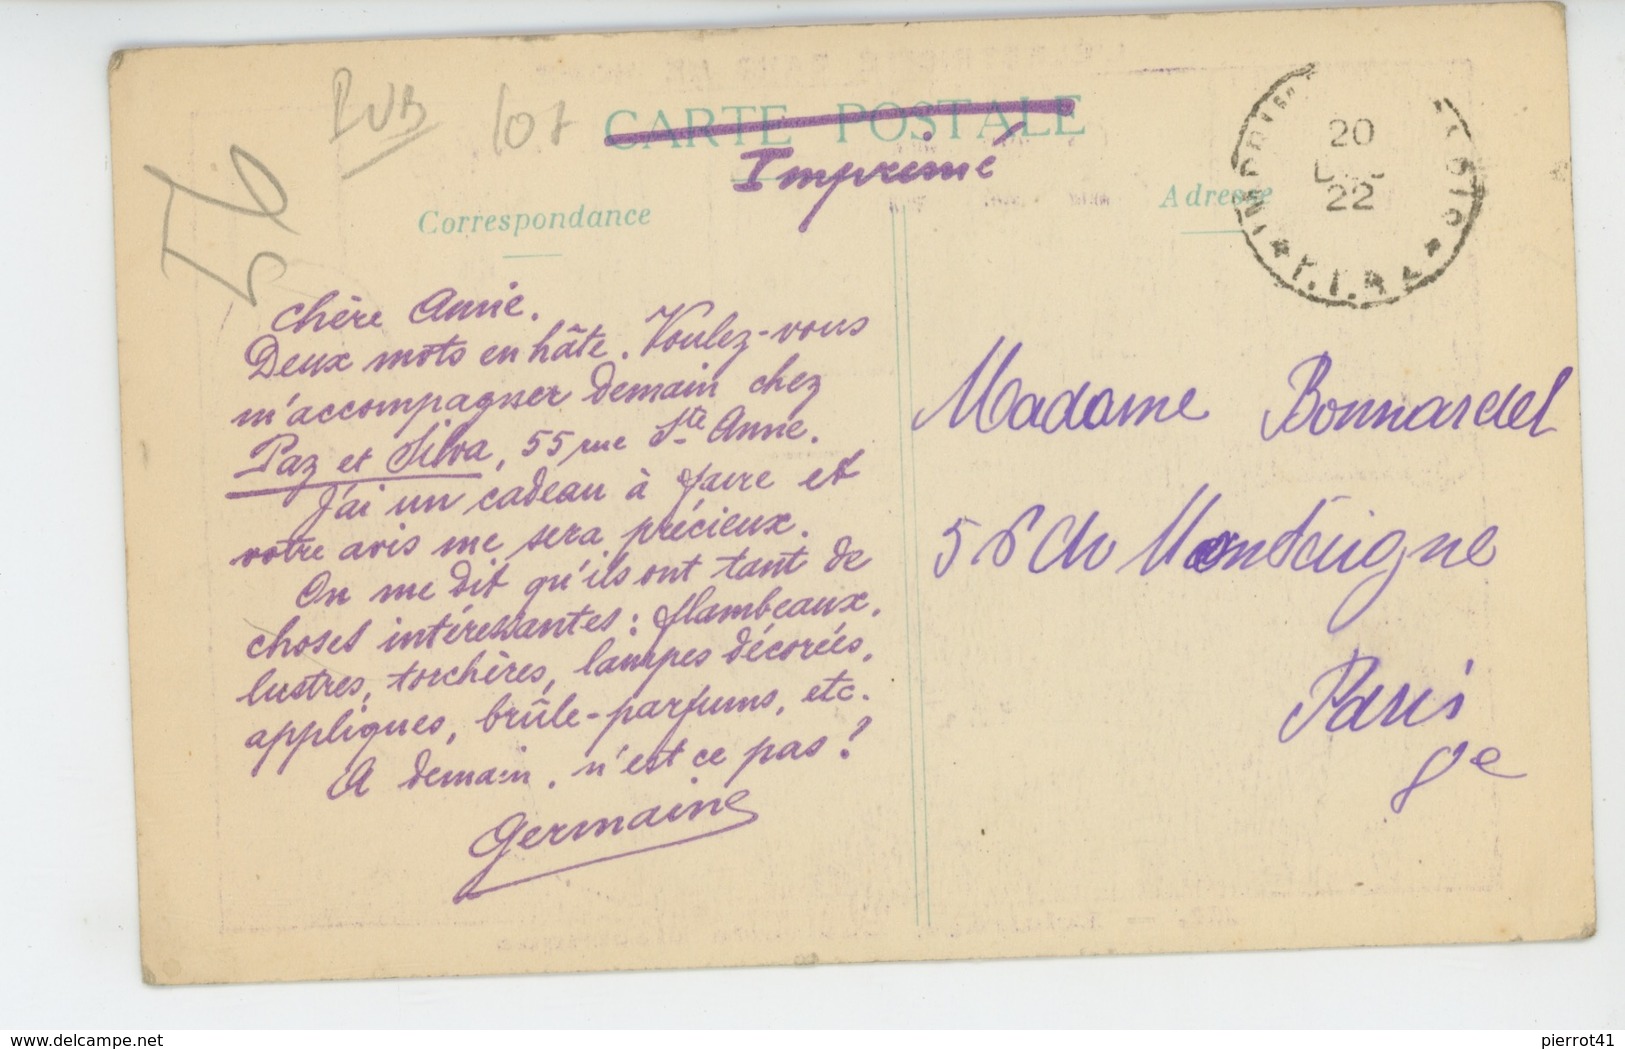 PUB
107
56
CARTE POSTALE
Imprimé
Correspondance
Adresse
20
22
Chère Annie.
Deux mots en hâte. Voulez-vous
m'accompagner demain chez
Paz et Silva, 55 rue Ste Anne.
J'ai un cadeau à faire et
votre avis me sera précieux.
On me dit qu'ils ont tant de
choses intéressantes : flambeaux,
lustres, torchères, lampes décorées,
appliques, brûle-parfums, etc.
A demain, n'est ce pas ?
Germaine
Madame Bonnardel
Paris
www.delcampe.net
pierrot41